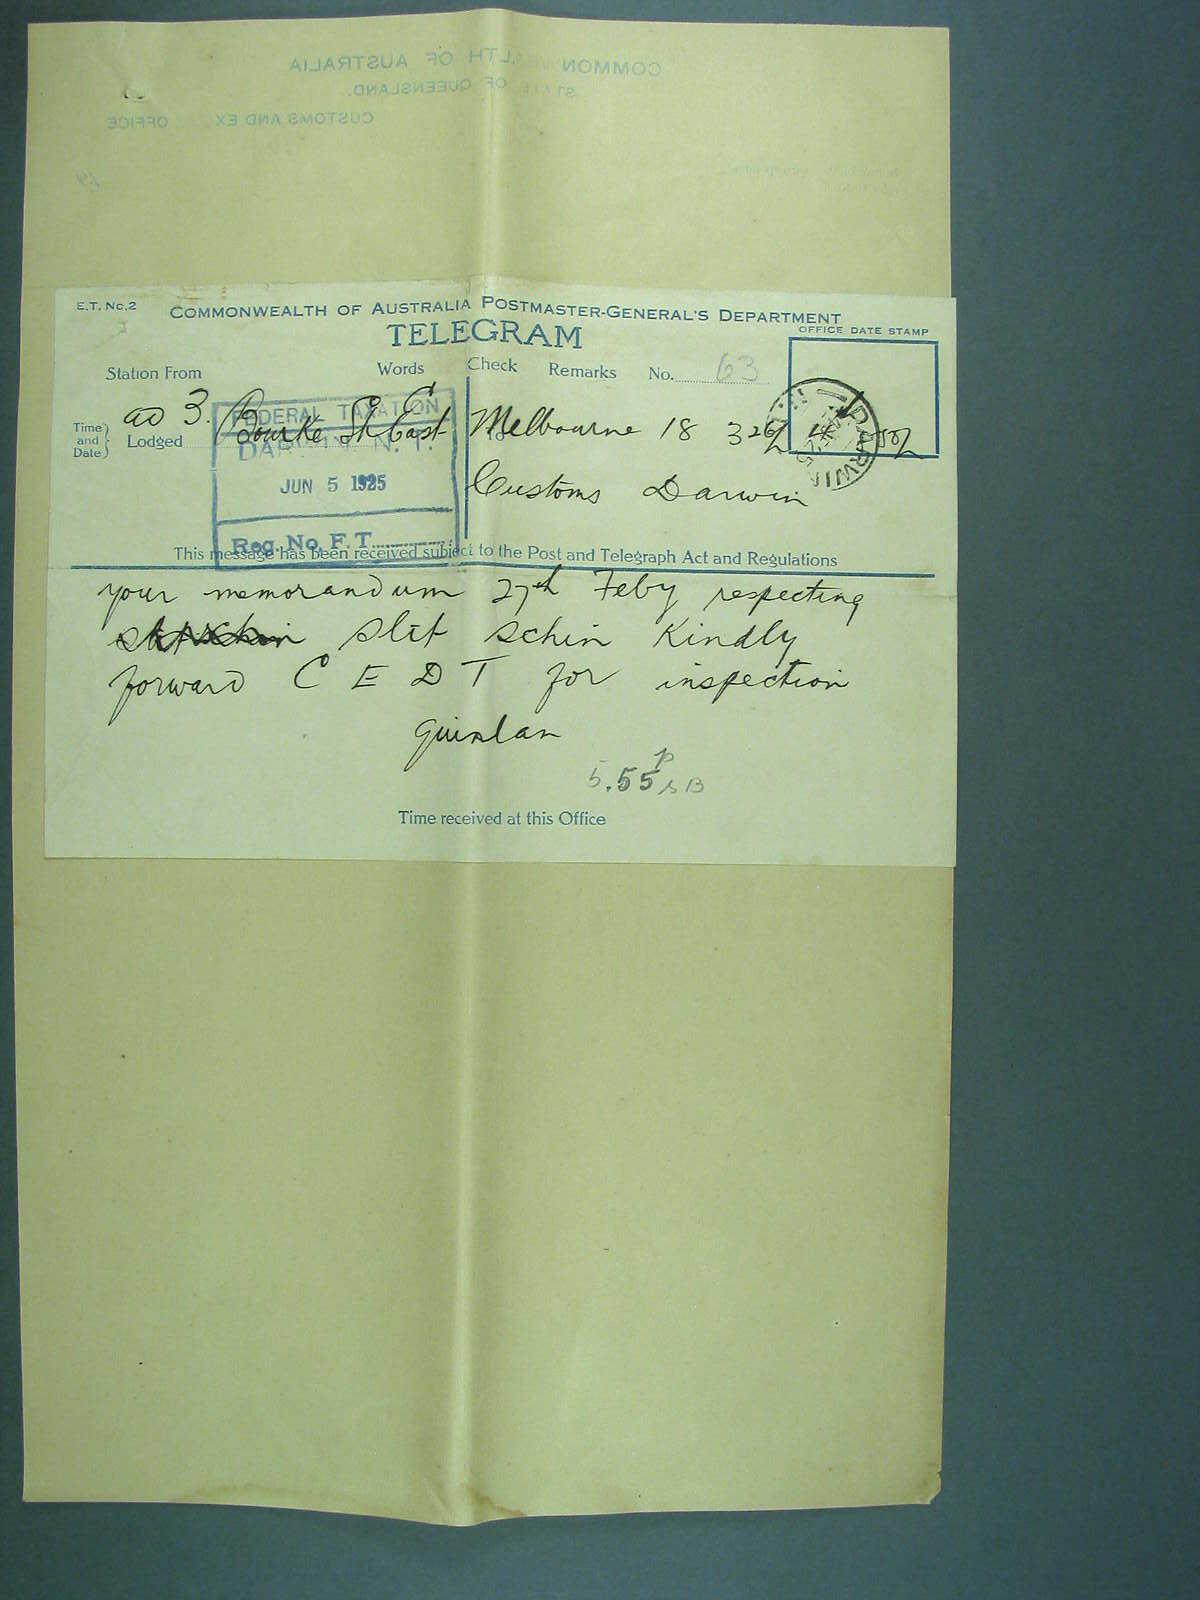 COMMONWEALTH OF AUSTRALIA
STATE OF QUEENSLAND.
CUSTOMS AND EX OFFICE
E.T. No.2 COMMONWEALTH OF AUSTRALIA POSTMASTER-GENERAL'S DEPARTMENT
TELEGRAM
OFFICE DATE STAMP
Station From Words Check Remarks No. 63
FEDERAL TAXATION
DARWIN, N.T.
JUN 5 1925
Reg. No. F.T.
Time and Date Lodged
3. Bourke St East Melbourne 18 3 26
DARWIN
Customs Darwin
This message has been received subject to the Post and Telegraph Act and Regulations
your memorandum 27th Feby respecting
slit schin Kindly
forward C E D T for inspection
Quinlan
5.55 p
Time received at this Office